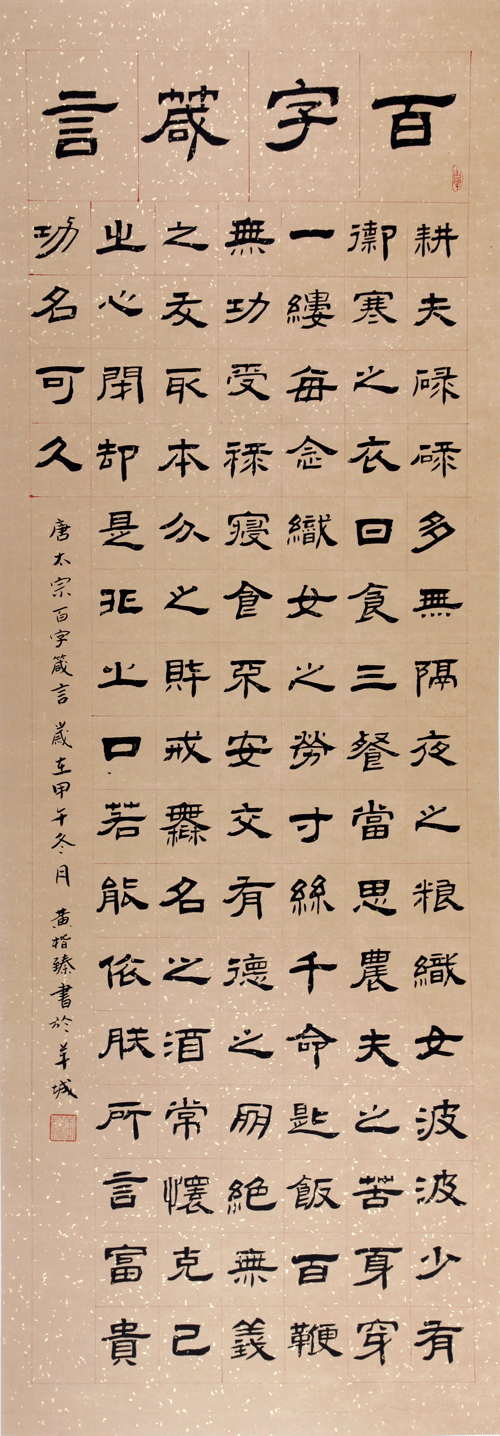 百字箴言
耕夫碌碌多無隔夜之粮織女波波少有
御寒之衣日食三餐當思農夫之苦身穿
一縷每念織女之勞寸絲千命匙飯百鞭
無功受祿寢食不安交有德之朋絕無義
之友取本分之財戒無名之酒常懷克己
之心閉却是非之口若能依朕所言富貴
功名可久
唐太宗百字箴言 歲在甲午冬月 黃楷臻書於羊城